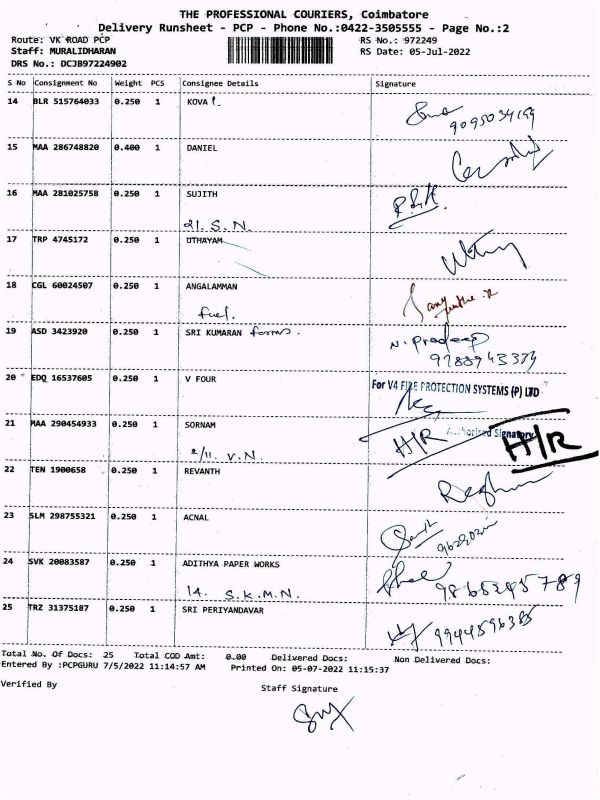 THE PROFESSIONAL COURIERS, Coimbatore
Delivery Runsheet - PCP - Phone No.:0422-3505555 - Page No.:2
Route: VK ROAD PCP RS No.: 972249
Staff: MURALIDHARAN RS Date: 05-Jul-2022
DRS No.: DCJB97224902
S No Consignment No Weight PCS Consignee Details Signature
14 BLR 515764033 0.250 1 KOVAI
9095034199
15 MAA 286748820 0.400 1 DANIEL
16 MAA 281025758 0.250 1 SUJITH
21. S.N.
17 TRP 4745172 0.250 1 UTHAYAM
18 CGL 60024507 0.250 1 ANGALAMMAN
fuel.
19 ASD 3423920 0.250 1 SRI KUMARAN forms.
N. Pradeep
20 EDQ 16537605 0.250 1 V FOUR
For V4 FIRE PROTECTION SYSTEMS (P) LTD
Authorised Signatory
21 MAA 290454933 0.250 1 SORNAM H/R H/R
2/11. V.N.
22 TEN 1900658 0.250 1 REVANTH
23 SLM 298755321 0.250 1 ACNAL
24 SVK 20083587 0.250 1 ADITHYA PAPER WORKS
14. S.K.M.N. 9865245789
25 TRZ 31375187 0.250 1 SRI PERIYANDAVAR
Total No. Of Docs: 25 Total COD Amt: 0.00 Delivered Docs: Non Delivered Docs:
Entered By :PCPGURU 7/5/2022 11:14:57 AM Printed On: 05-07-2022 11:15:37
Verified By
Staff Signature